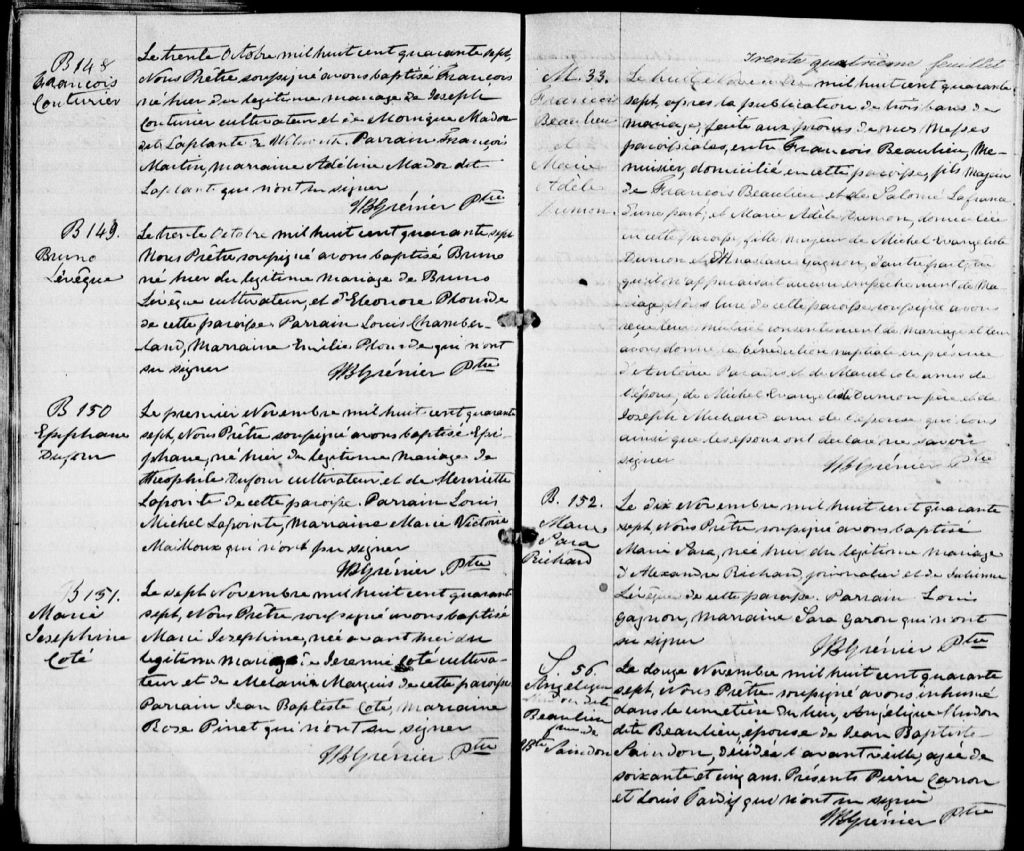 B 148
François
Couturier
Le trente Octobre mil huit cent quarante sept,
Nous Prêtre soussigné avons baptisé François
né hier du légitime mariage de Joseph
Couturier cultivateur et de Monique Mador
dit Laplante de Parrain François
Martin, Marraine Adéline Mador dit
Laplant qui n'ont su signer
JBGrénier Ptre
B 149.
Bruno
Lévêque
Le trente Octobre mil huit cent quarante sept
Nous Prêtre soussigné avons baptisé Bruno
né hier du légitime mariage de Bruno
Lévêque cultivateur, et d'Eleonore Plourde
de cette paroisse. Parrain Louis Chamber-
land, Marraine Emélie Plourde qui n'ont
su signer JBGrénier Ptre
B 150
Epiphane
Dufour
Le premier Novembre mil huit cent quarante
sept, Nous Prêtre soussigné avons baptisé Epi-
phane, né hier du légitime mariage de
Théophile Dufour cultivateur et de Henriette
Lapointe de cette paroisse. Parrain Louis
Michel Lapointe, Marraine Marie Victoire
Mailloux qui n'ont pu signer
JBGrénier Ptre
B 151.
Marie
Josephine
Coté
Le sept Novembre mil huit cent quarante
sept, Nous Prêtre soussigné avons baptisé
Marie Josephine, née avant hier du
légitime mariage de Jeremie Coté cultiva-
teur et de Mélanie Marquis de cette paroisse
Parrain Jean Baptiste Coté, Marraine
Rose Pinet qui n'ont su signer
JBGrénier Ptre
Trente quatrième feuillet
M. 33.
François
Beaulieu
et
Marie
Adèle
Dumon
Le huit Novembre mil huit cent quarante
sept, après la publication de trois bans de
mariage, faite aux prônes de nos Messes
paroissiales, entre François Beaulieu, Me-
nuisier, domicilié en cette paroisse, fils Majeur
de François Beaulieu et de Salomé Lafrance
d'une part; et Marie Adèle Dumon, domiciliée
en cette paroisse, fille majeur de Michel Evangeliste
Dumon et Anastasie Gagnon, d'autre part, ne
qu'il n'apparaissait aucun empêchement de Ma-
riage, Nous Curé de cette paroisse, soussigné avons
reçu leur mutuel consentement de mariage et leur
avons donné la bénédiction nuptiale en présence
d'Antoine et de Marcel Coté amis de
l'époux, de Michel Evangeliste Dumon père et de
Joseph Michaud ami de l'épouse qui tous
ainsi que les époux ont déclaré ne savoir
signer JBGrénier Ptre
B. 152.
Marie
Sara
Richard
Le dix Novembre mil huit cent quarante
sept, Nous Prêtre, soussigné avons baptisé
Marie Sara, née hier du légitime mariage
d'Alexandre Richard, journalier et de Julienne
Lévêque de cette paroisse. Parrain Louis
Gagnon, Marraine Sara Garon qui n'ont
su signer JBGrénier Ptre
S. 56.
Angélique
dite
Beaulieu
fme de
JBte Saindon
Le douze Novembre mil huit cent quarante
sept, Nous Prêtre soussigné avons inhumé
dans le cimetière du lieu, Angélique
dite Beaulieu, épouse de Jean Baptiste
Saindon, décédée l'avant veille, agée de
soixante et cinq ans. Présents Pierre Caron
et Louis Tardif qui n'ont su signer
JBGrénier Ptre